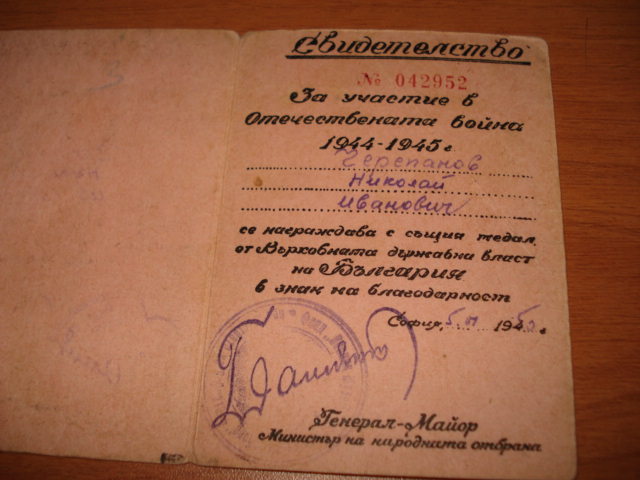 Свидетелство
№ 042952
За участие в
Отечествената война
1944-1945 г.
Черепанов
Николай
Иванович
се награждава с същия медал
от Върховната държавна власт
на България
в знак на благодарност
София, 194 г.
Генерал-Майор
Министър на народната отбрана